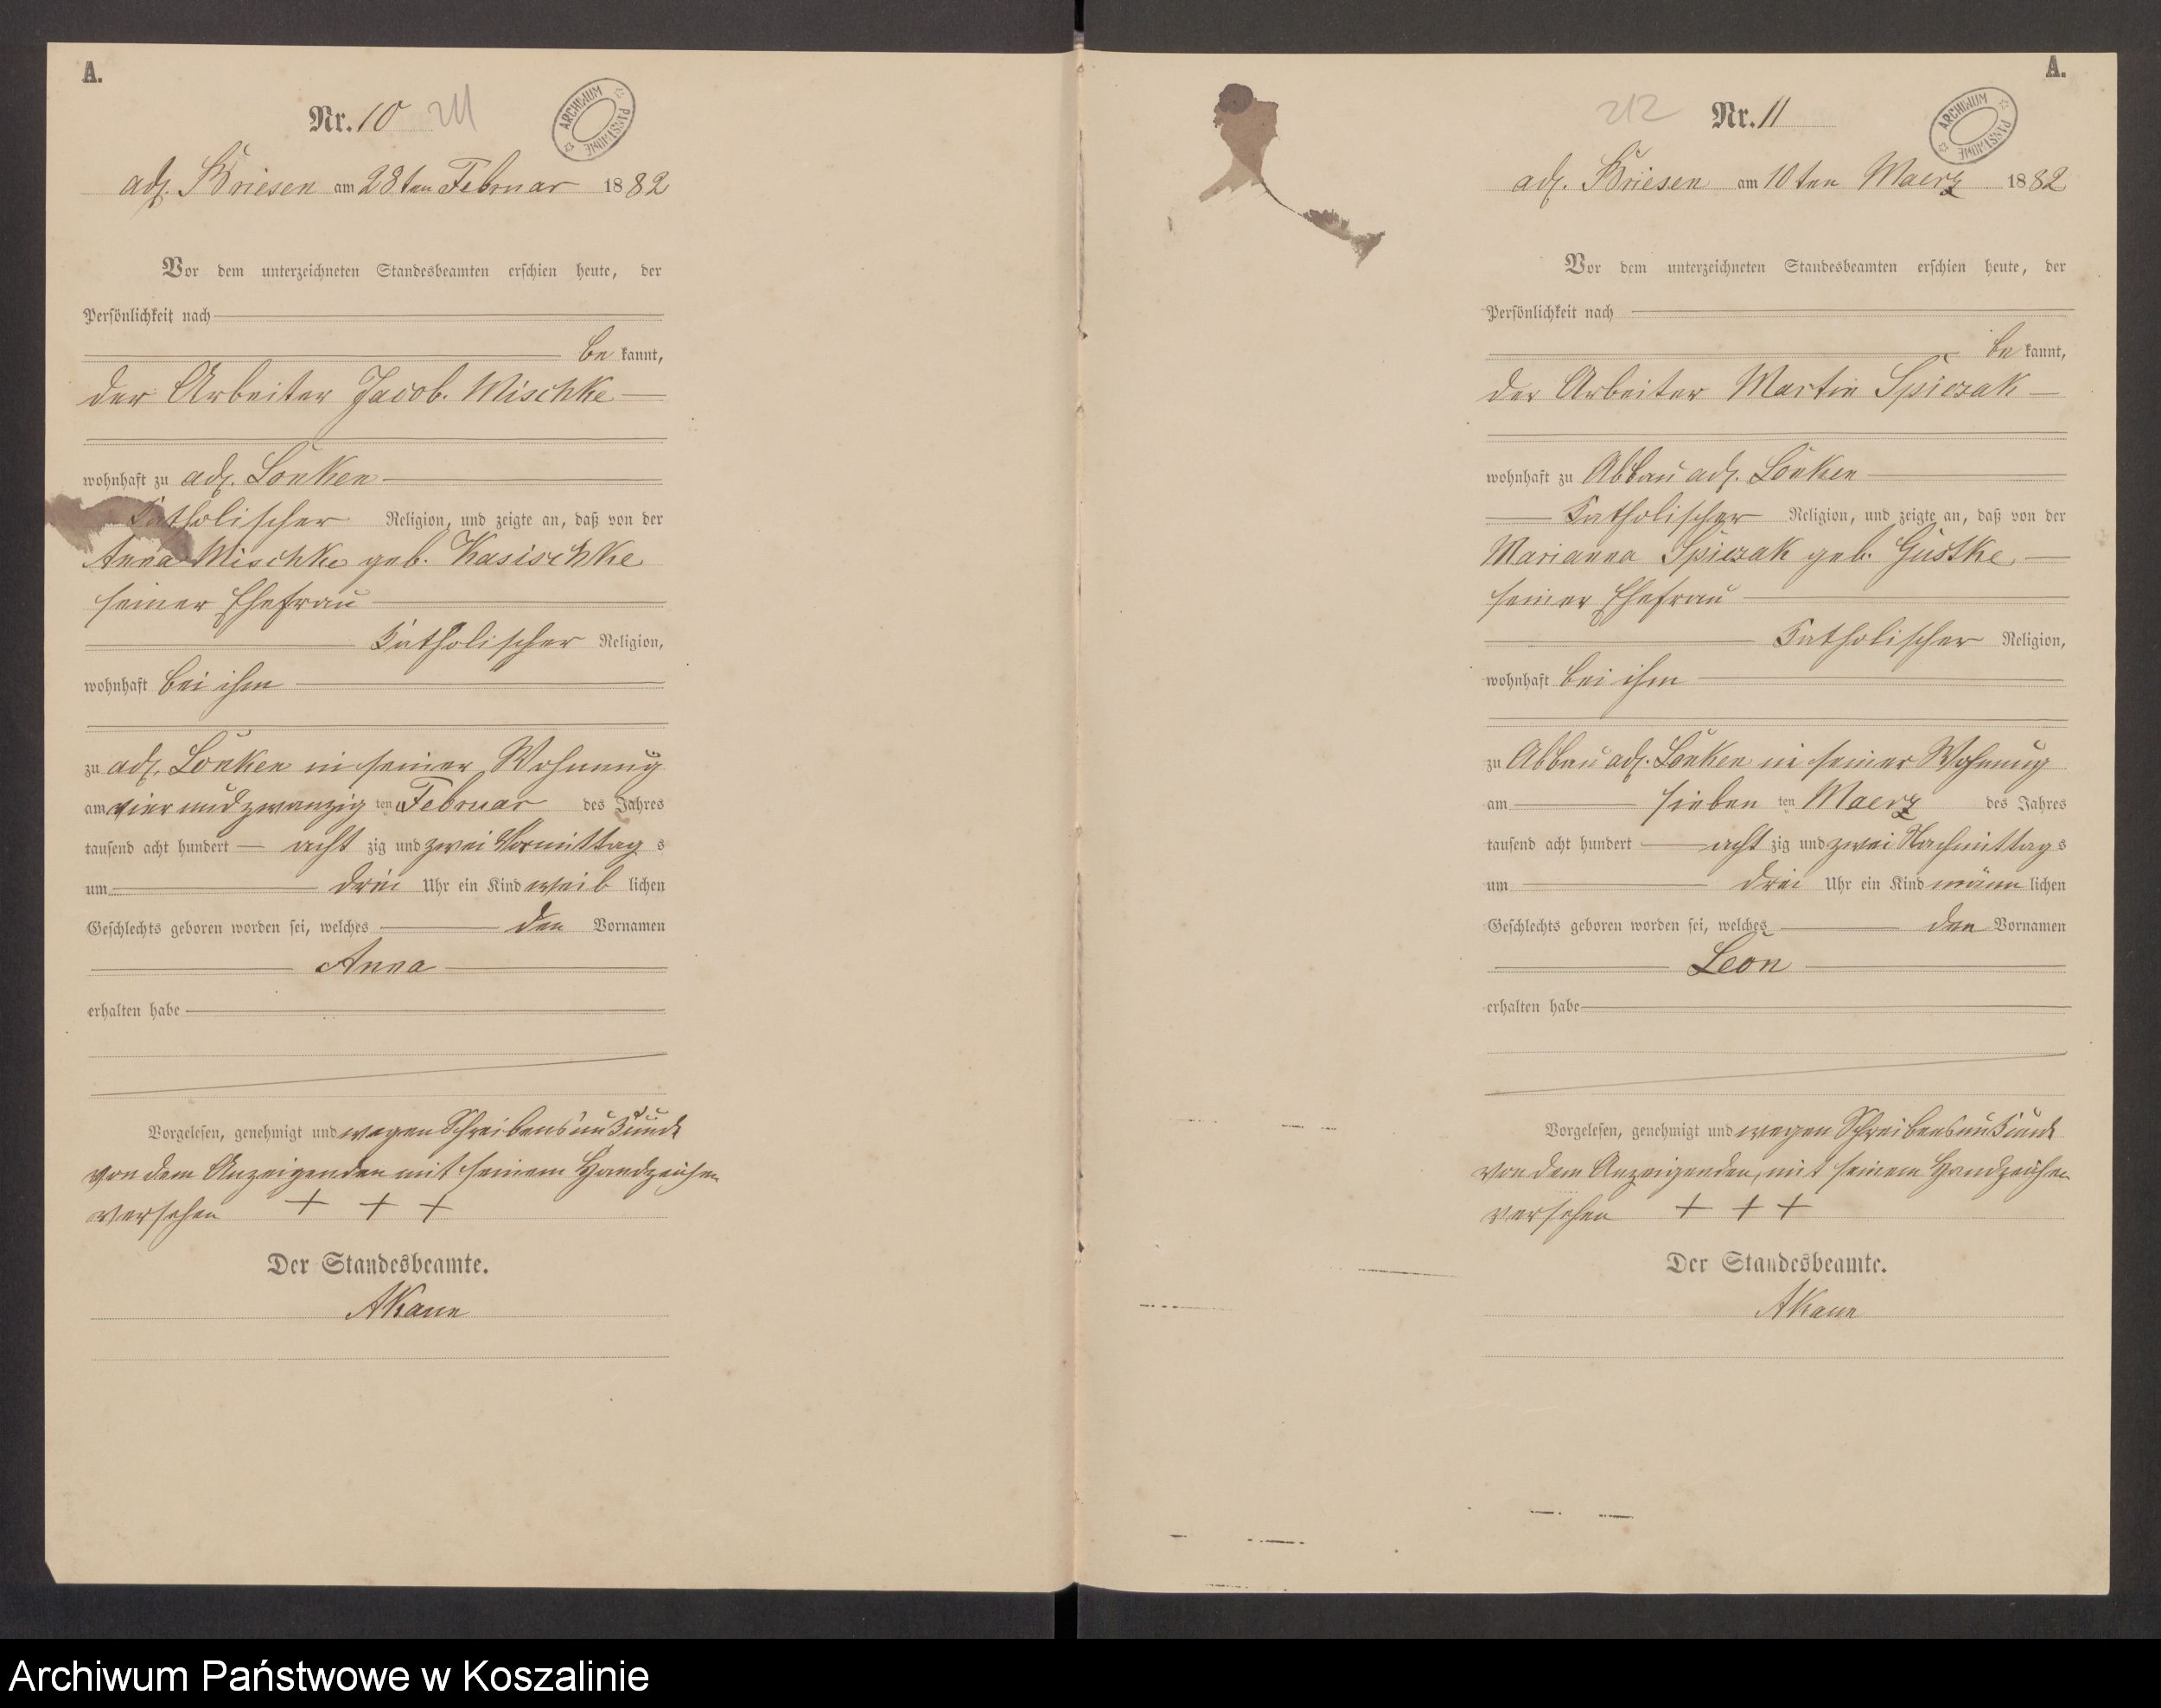 A.
Nr. 10 211
ARCHIWUM PAŃSTWOWE
adl. Briesen am 28ten Februar 1882
Vor dem unterzeichneten Standesbeamten erschien heute, der
Persönlichkeit nach
be kannt,
der Arbeiter Jacob Mischke
wohnhaft zu adl. Lonken
Katholischer Religion, und zeigte an, daß von der
Anna Mischke geb. Kasischke
seiner Ehefrau
Katholischer Religion,
wohnhaft bei ihm
zu adl. Lonken in seiner Wohnung
am vier und zwanzig ten Februar des Jahres
tausend acht hundert acht zig und zwei Vormittag s
um drei Uhr ein Kind weib lichen
Geschlechts geboren worden sei, welches den Vornamen
Anna
erhalten habe
Vorgelesen, genehmigt und wegen Schreibensunkunde
von dem Anzeigenden mit seinem Handzeichen
versehen + + +
Der Standesbeamte.
AKann
A.
212 Nr. 11
ARCHIWUM PAŃSTWOWE
adl. Briesen am 10ten Maerz 1882
Vor dem unterzeichneten Standesbeamten erschien heute, der
Persönlichkeit nach
be kannt,
der Arbeiter Martin Spiczak
wohnhaft zu Abbau adl. Lonken
Katholischer Religion, und zeigte an, daß von der
Marianna Spiczak geb. Gustke
seiner Ehefrau
Katholischer Religion,
wohnhaft bei ihm
zu Abbau adl. Lonken in seiner Wohnung
am sieben ten Maerz des Jahres
tausend acht hundert acht zig und zwei Nachmittag s
um drei Uhr ein Kind männ lichen
Geschlechts geboren worden sei, welches den Vornamen
Leon
erhalten habe
Vorgelesen, genehmigt und wegen Schreibensunkunde
von dem Anzeigenden, mit seinem Handzeichen
versehen + + +
Der Standesbeamte.
AKann
Archiwum Państwowe w Koszalinie